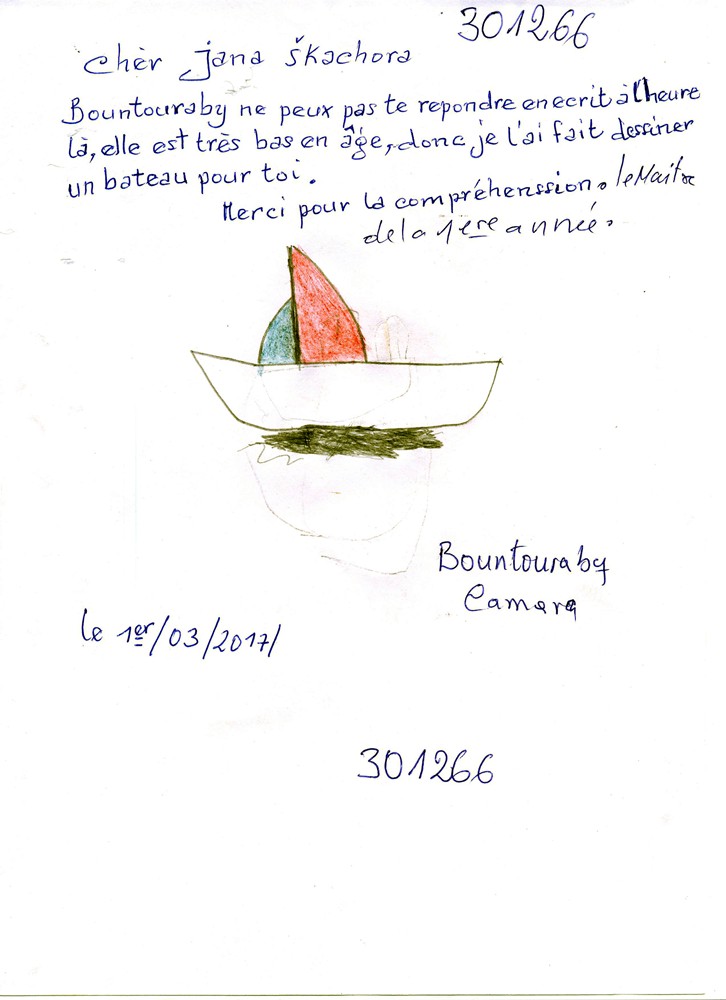 301266
Chèr Jana Škachora
Bountouraby ne peux pas te repondre en ecrit à l'heure
là, elle est très bas en âge, donc je l'ai fait dessiner
un bateau pour toi.
Merci pour la compréhenssion. le Maître
de la 1ère année.
Bountouraby
Camara
le 1er/03/2017/
301266